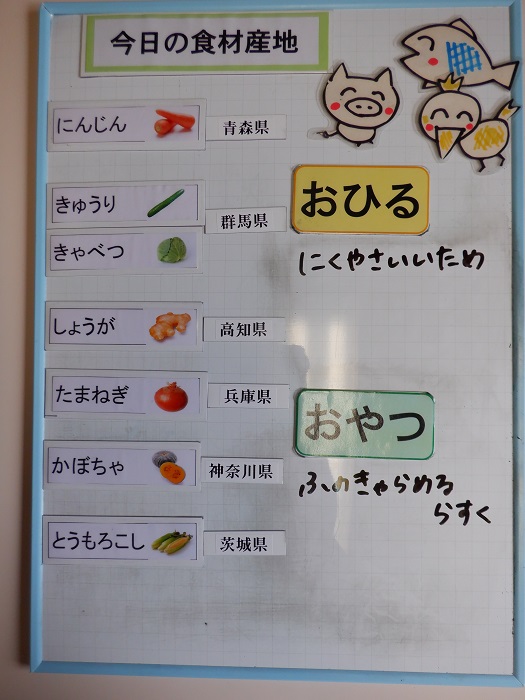 今日の食材産地
にんじん 青森県
きゅうり 群馬県
きゃべつ
しょうが 高知県
たまねぎ 兵庫県
かぼちゃ 神奈川県
とうもろこし 茨城県
おひる
にくやさいいため
おやつ
ふのきゃらめる
らすく